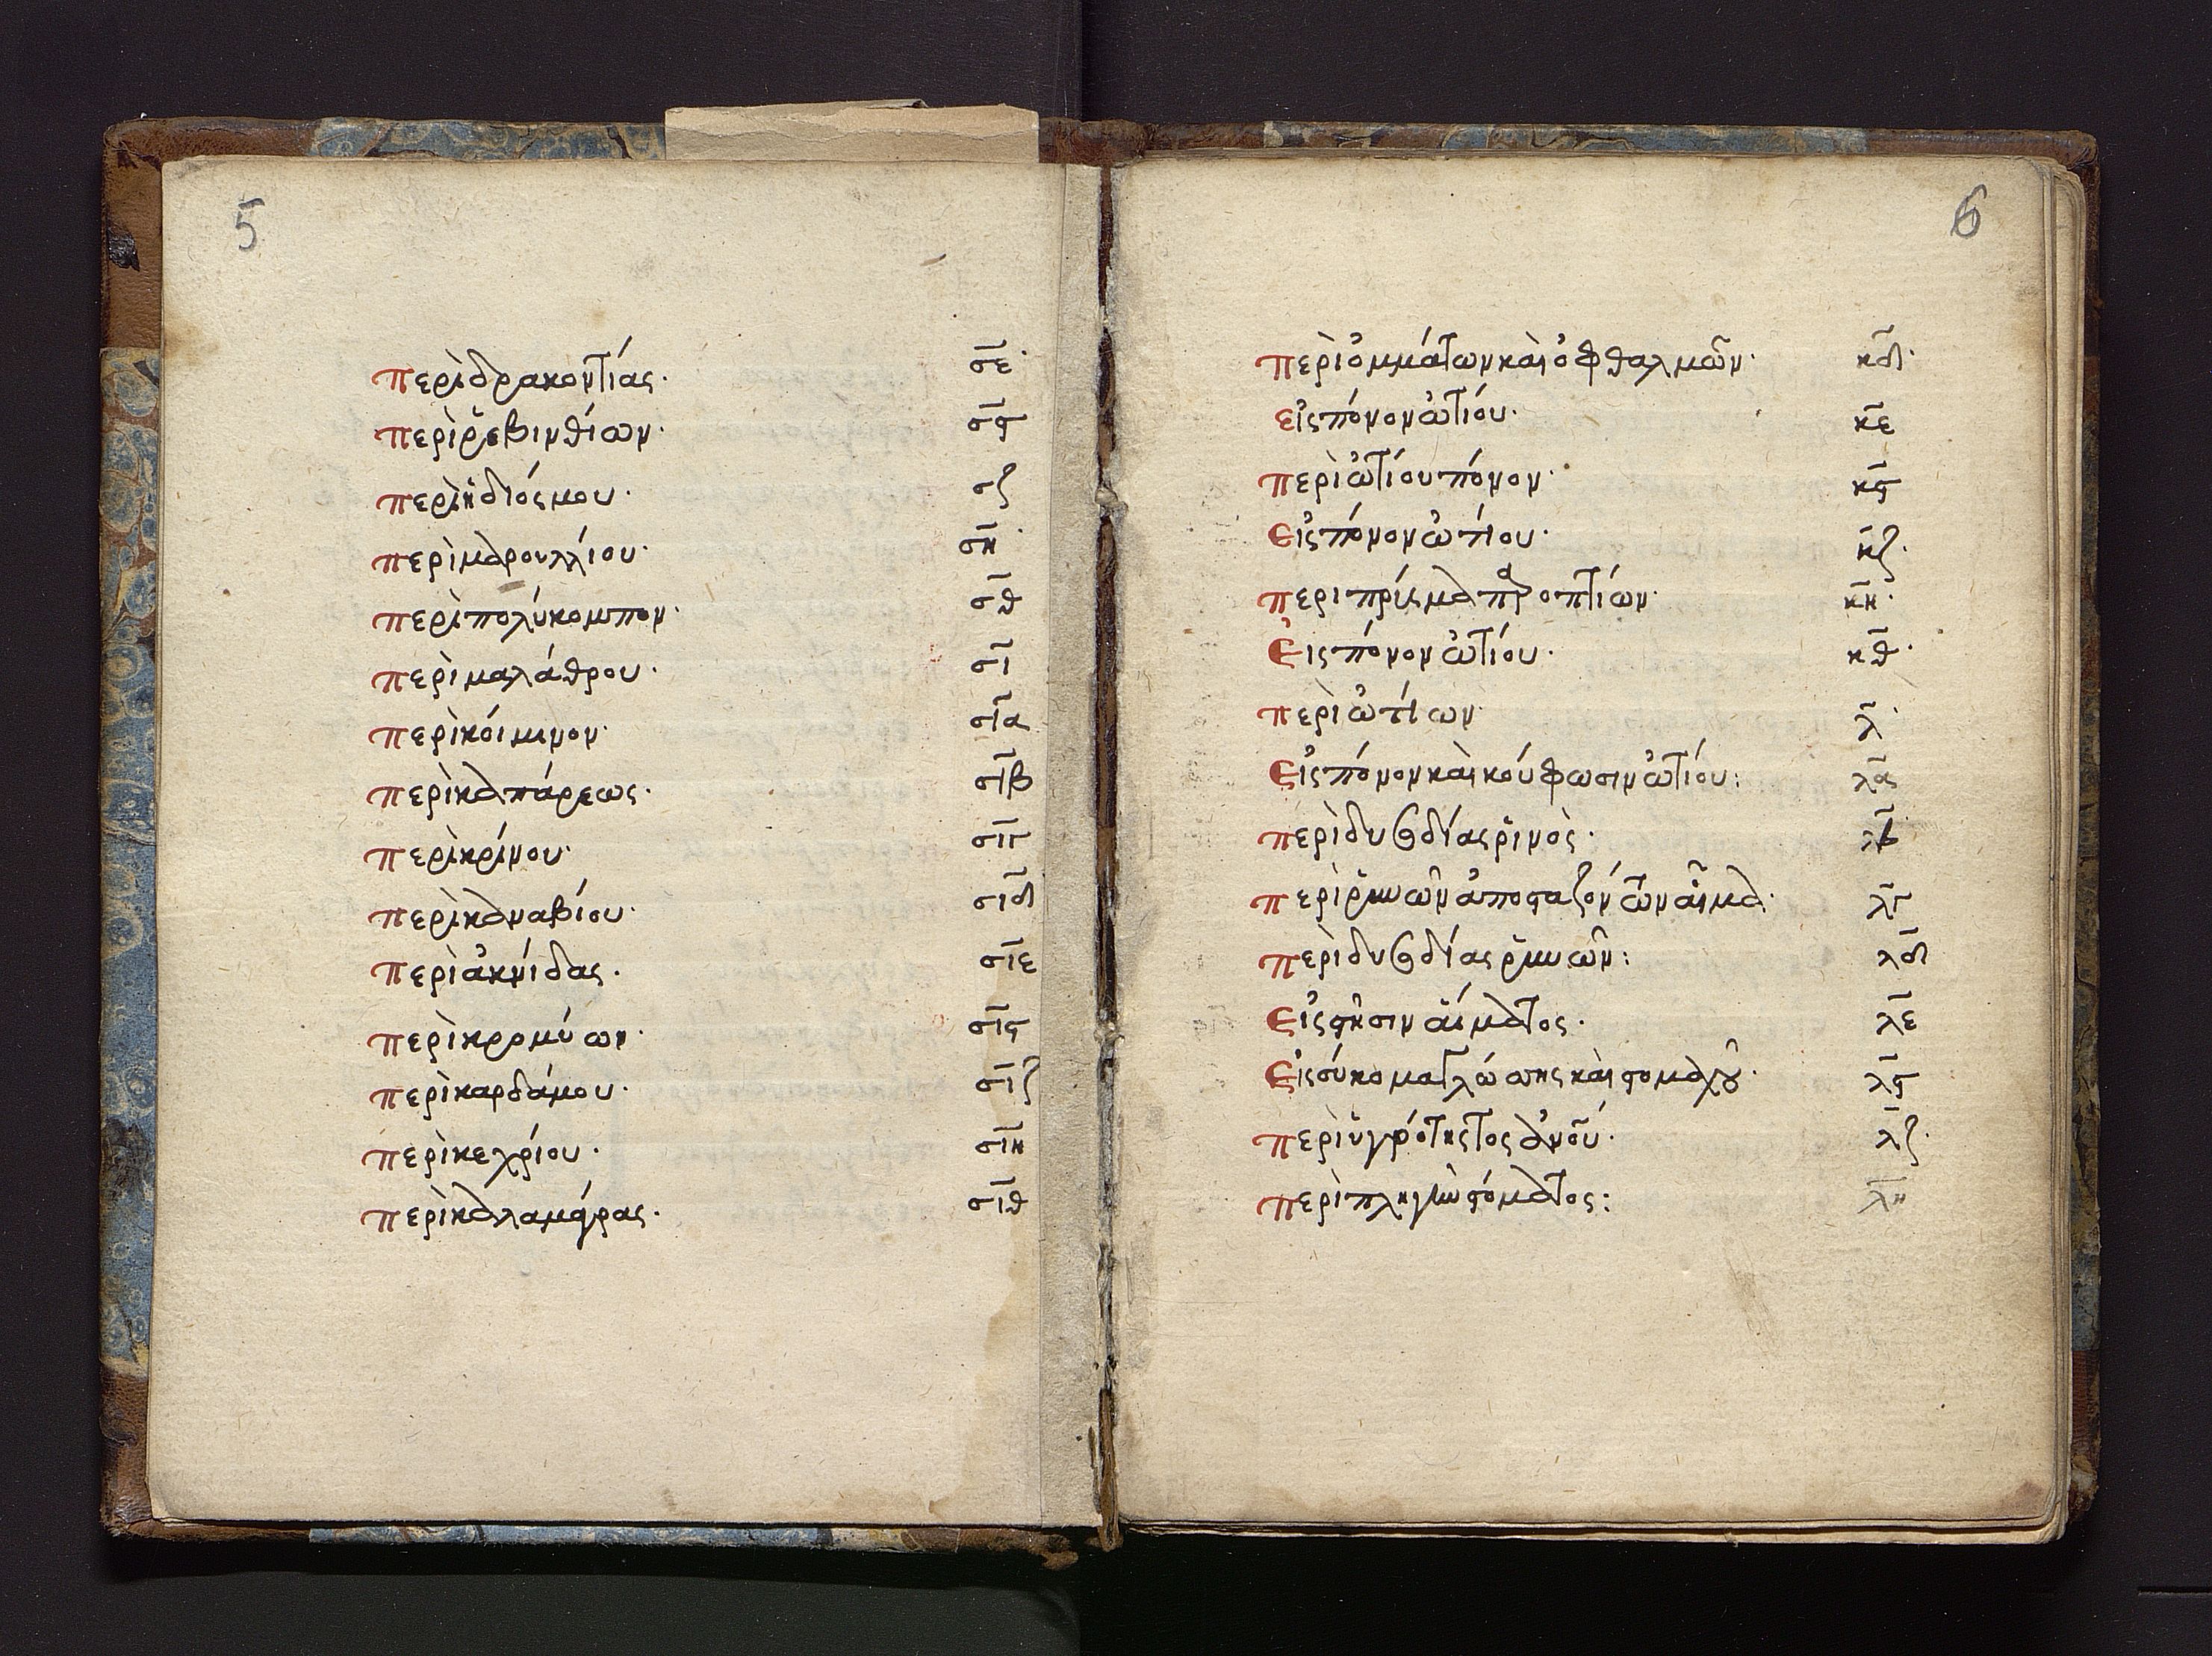 5
περὶ δρακοντίας· σε·
περὶ ρεβινθίων· σϛ
περὶ ἡδιόσμου· σζ
περὶ μαρουλλίου· ση·
περὶ πολύκομπον· σθ
περὶ μαλάθρου· σι
περὶ κόιμινον· σια
περὶ καπάρεως· σιβ
περὶ κρίνου· σιγ
περὶ καναβίου· σιδ
περὶ ἀκνίδας· σιε
περὶ κρομύων· σιϛ
περὶ καρδάμου· σιζ
περὶ κεχρίου· σιη
περὶ καλαμύρας· σιθ
6
περὶ ὀμμάτων καὶ ὀφθαλμῶν· κδ·
εἰς πόνον ὠτίου· κε
περὶ ὠτίου πόνον· κϛ
Εἰς πόνον ὠτίου· κζ·
περι πρίσμα ὠτίων· κη·
Εἰς πόνον ὠτίου· κθ·
περὶ ὠτίων· λ·
Εἰς πόνον καὶ κούφωσιν ὠτίου: λα
περὶ δυσοδίας ρινὸς· λβ
περὶ ρινῶν ἀποσταζόντων αἷμα· λγ
περὶ δυσοδίας ρινῶν: λδ
Εἰς στῆσιν αἵματος· λε
Εἰς σύκομα γλώσσης καὶ στομάχου· λϛ
περὶ ὑγρότητος λζ·
περὶ πληγὴν στόματος: λη